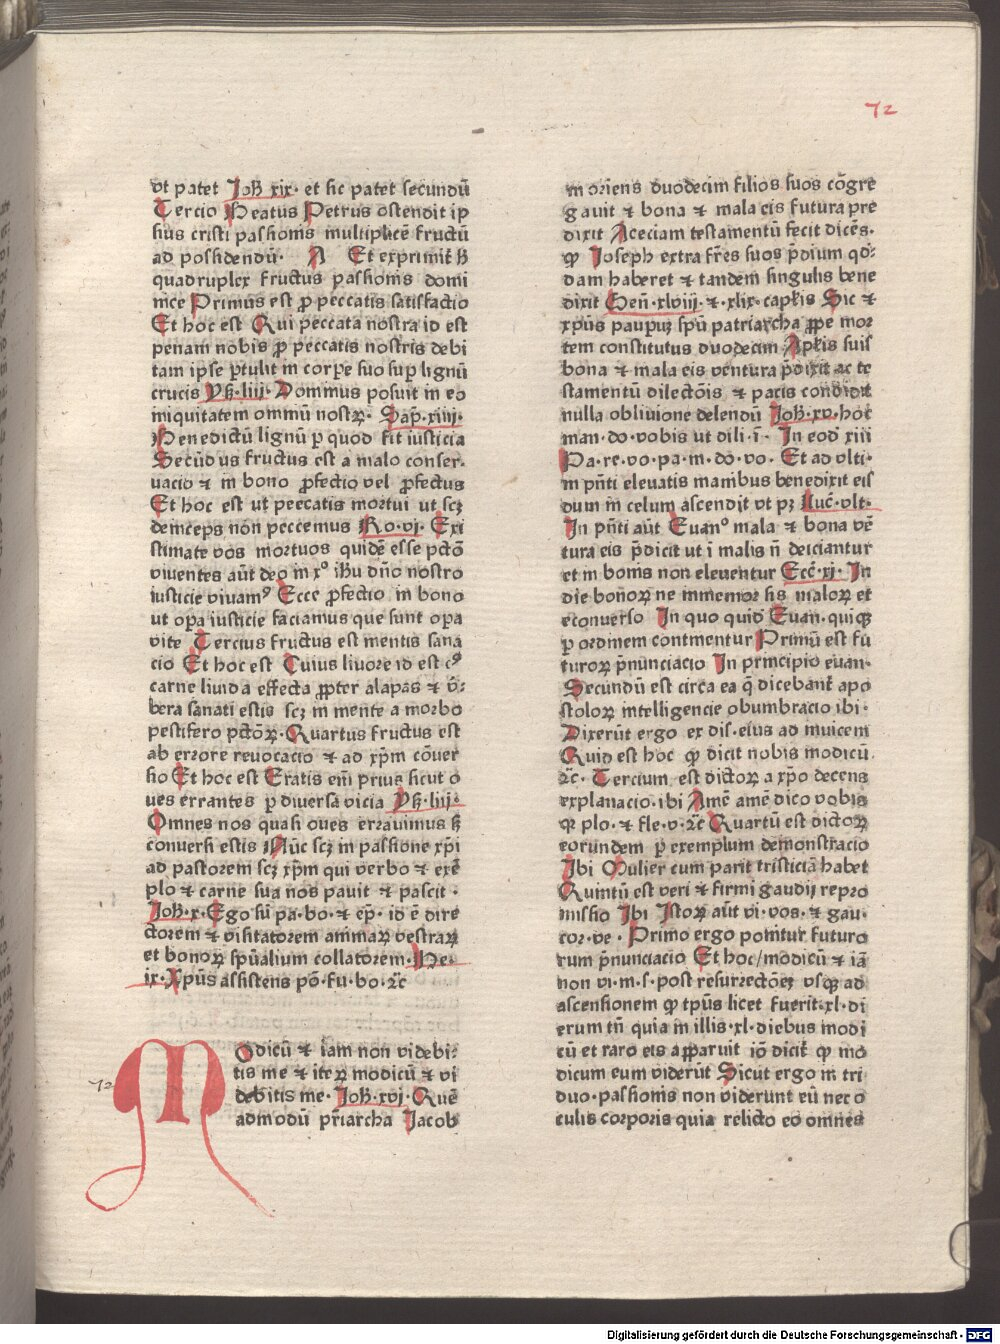 72
vt patet Joh̄ xix· et sic patet secundū
Tercio Beatus Petrus ostendit ip
sius cristi passionis multiplicē fructū
ad possidendū· A Et exprimit̄
quadruplex fructus passionis domi
nice Primus est ꝓ peccatis satisfactio
Et hoc est Qui peccata nostra id est
penam nobis ꝓ peccatis nostris debi
tam ipse ꝑtulit in corpe suo suꝑ lignū
crucis Ys̄·liij· Dominus posuit in eo
iniquitatem omniū nostrꝝ· Sap̄·xiiij·
Benedictū lignū ꝑ quod fit iusticia
Secūdus fructus est a malo conser·
uacio ⁊ in bono ꝓfectio vel ꝓfectus
Et hoc est ut peccatis mortui ut scꝫ
deinceps non peccemus Ro·vj· Exi
stimate vos mortuos quidē esse pctō
viuentes aūt deo in xº ihū dn̄o nostro
iusticie viuamꝰ Ecce ꝓfectio in bono
ut oꝑa iusticie faciamus que sunt oꝑa
vite Tercius fructus est mentis sana
cio Et hoc est Cuius liuore id est cꝰ
carne liuida effecta ꝓpter alapas ⁊ v̄·
bera sanati estis scꝫ in mente a morbo
pestifero pctōꝝ· Quartus fructus est
ab errore reuocacio ⁊ ad xp̄m cōuer
sio Et hoc est Eratis em̄ prius sicut o
ues errantes ꝑ diuersa vicia Ys̄·liij·
Omnes nos quasi oues errauimus sꝫ
conuersi estis Nūc scꝫ in passione xp̄i
ad pastorem scꝫ xp̄m qui verbo ⁊ exē
plo ⁊ carne sua nos pauit ⁊ pascit ·
Joh̄·x· Ego sū pa·bo· ⁊ ep̄· id ē dire
ctorem ⁊ visitatorem animaꝝ vestraꝝ
et bonoꝝ spūalium collatorem· He·
ix· Xp̄us assistens pō·fu·bo·⁊c̄
72
Modicū ⁊ iam non videbi·
tis me ⁊ iteꝝ modicū ⁊ vi
debitis me· Joh̄·xvj· Quē
admodū pr̄iarcha Jacob
moriens duodecim filios suos cōgre
gauit ⁊ bona ⁊ mala eis futura pre
dixit Aceciam testamentū fecit dicēs·
ꝙ Joseph extra fr̄es suos p̄dium qd·
dam haberet ⁊ tandem singulis bene
dixit Gen̄·xlviij·⁊·xlix·capl̄is Sic ⁊
xp̄us pauperꝫ spū patriarcha ꝓpe mor
tem constitutus duodecim Apl̄is suis
bona ⁊ mala eis ventura p̄dixit ac te
stamentū dilectōis ⁊ pacis condidit
nulla obliuione delendū Joh̄·xv·hoc
man·do·vobis ut dili·ī· In eod xiii
Pa·re·vo·pa·m·do·vo· Et ad vlti·
m pn̄ti eleuatis manibus benedixit eis
dum in celum ascendit vt pꝫ Luc̄·vlt·
In pn̄ti aūt Euanº mala ⁊ bona vē
tura eis p̄dicit ut ī malis n̄ deiciantur
et in bonis non eleuentur Ecc̄·xj· In
die bonoꝝ ne inmemor sis maloꝝ et
econuerso In quo quid̄ Euan·quiqꝫ
ꝑ ordinem continentur Primū est fu
turoꝝ p̄nunciacio In principio euan·
Secundū est circa ea q̄ dicebant̄ apo
stoloꝝ intelligencie obumbracio ibi·
Dixerūt ergo ex dis·eius ad inuicem
Quid est hoc ꝙ dicit nobis modicū
⁊c̄· Tercium est dictoꝝ a xp̄o decens
explanacio·ibi Amē amē dico vobis
qꝛ plo·⁊ fle·v·⁊c̄ Quartū est dictoꝝ
eorundem ꝑ exemplum demonstracio
Ibi Mulier cum parit tristiciā habet
Quintū est veri ⁊ firmi gaudij repro
missio Ibi Istoꝝ aūt vi·vos·⁊ gau·
cor·ve· Primo ergo ponitur futuro
rum p̄nunciacio Et hoc/modicū ⁊ iā
non vi·m·s·post resurectōeꝫ vsqꝫ ad
ascensionem ꝙ tp̄us licet fuerit·xl·di
erum tn̄ quia in illis·xl·diebus modi
cū et raro eis apparuit iō dicit̄ ꝙ mo
dicum eum viderūt Sicut ergo in tri
duo·passionis non viderunt eū nec o
culis corporis quia relicto eo omnes
Digitalisierung gefördert durch die Deutsche Forschungsgemeinschaft · DFG